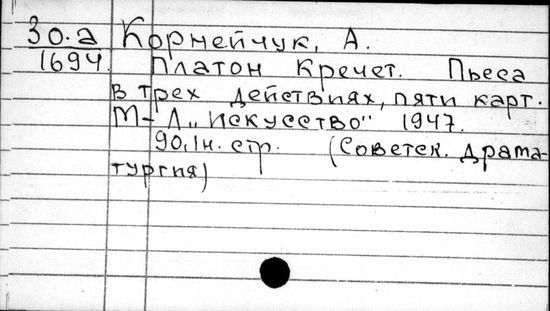 30.а Корнейчук, А.
1694. Платон Кречет. Пьеса
в трех действиях, пяти карт.
М-Л „Искусство" 1947.
90,1н. стр. (Советск. драма-
тургия)